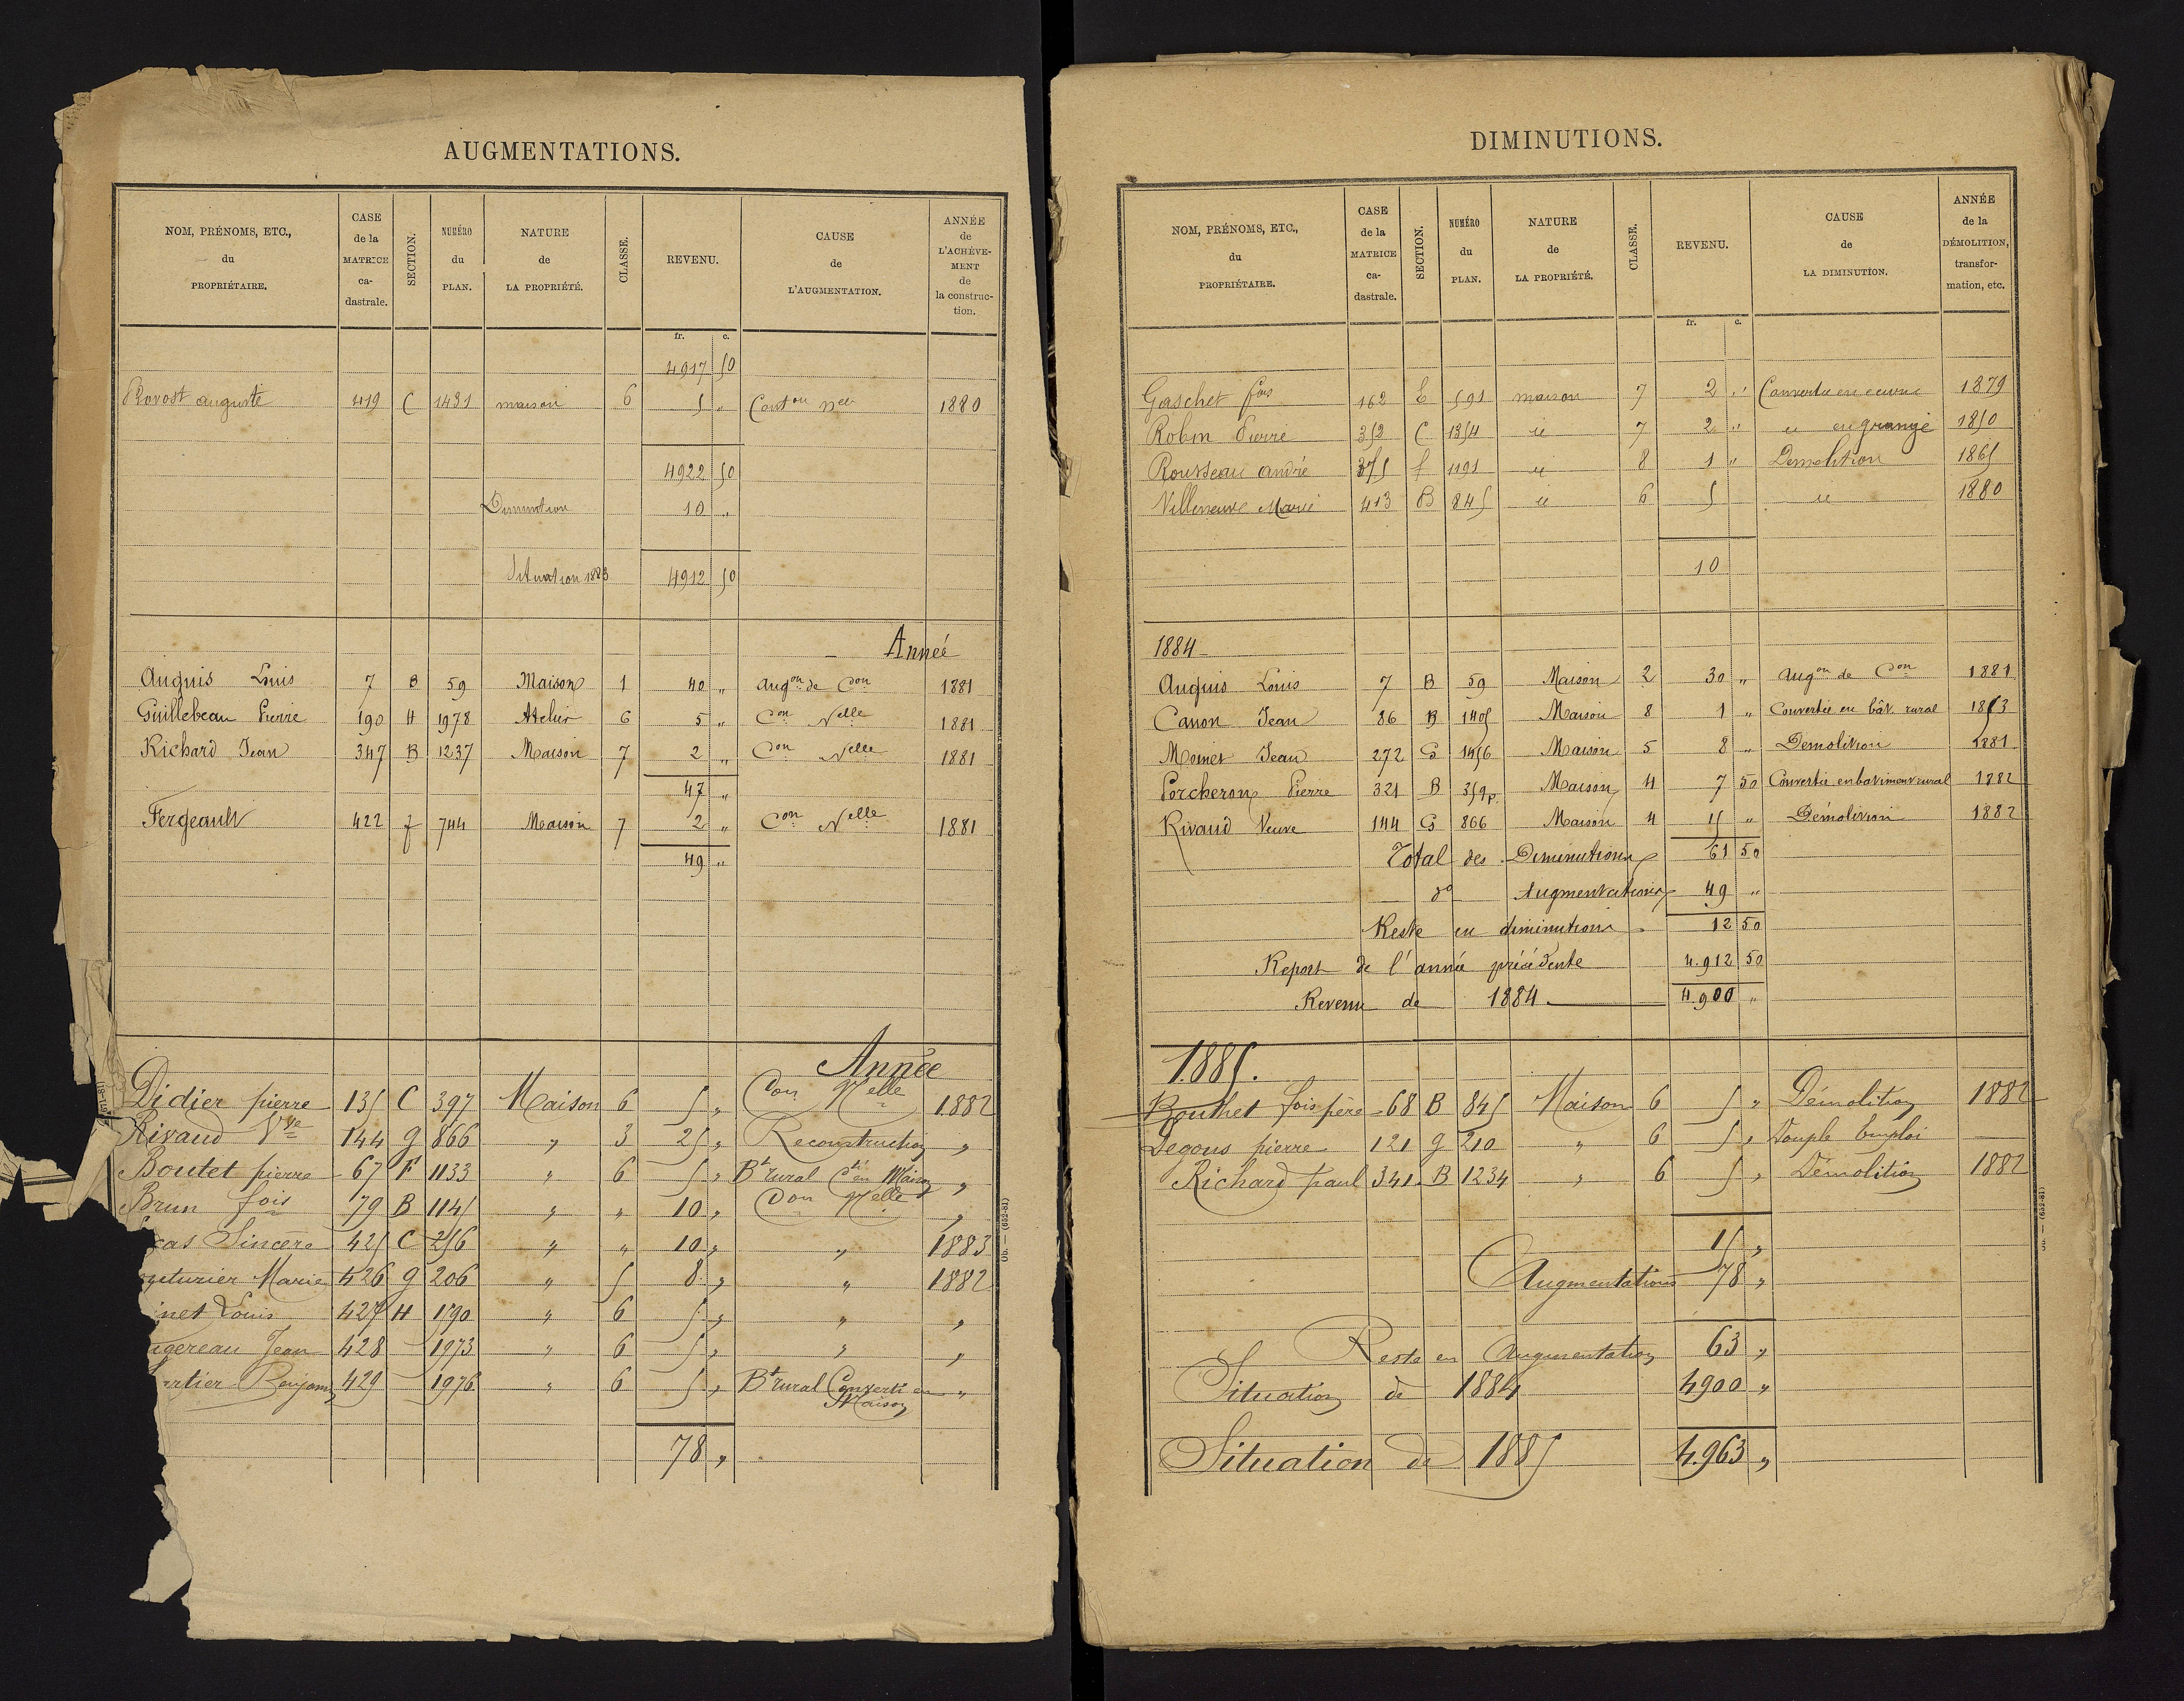 AUGMENTATIONS.
NOM, PRÉNOMS, ETC., du PROPRIÉTAIRE. | CASE de la MATRICE ca-dastrale. | SECTION. | NUMÉRO du PLAN. | NATURE de LA PROPRIÉTÉ. | CLASSE. | REVENU. | CAUSE de L'AUGMENTATION. | ANNÉE de L'ACHÈVE-MENT de la construc-tion.
fr. c.
4917 50
Provost auguste 419 C 1431 maison 6 5 " Const on nelle 1880
4922 50
Diminution 10 "
Situation 1883 4912 50
Année
Auguis Louis 7 B 59 Maison 1 40 " augon de Con 1881
Guillebeau Pierre 190 H 1978 Atelier 6 5 " Con Nelle 1881
Richard Jean 347 B 1237 Maison 7 2 " Con Nelle 1881
47 "
Fergeault 422 f 744 Maison 7 2 " Con Nelle 1881
49 "
Année
Didier pierre 135 C 397 Maison 6 5 " Con Nelle 1882
Rivaud Vve 144 g 866 " 3 25 " Reconstruction "
Boutet pierre 67 F 1133 " 6 5 " Bt rural Cti en Maison "
Brun fois 79 B 1145 " " 10 " Con Nelle "
cas Sincere 425 C 256 " " 10 " " 1883
uturier Marie 426 g 206 " 5 8 " " 1882
inet Louis 427 H 1790 " 6 5 " " "
gereau Jean 428 1973 " 6 5 " " "
artier Benjamin 429 1976 " 6 5 " Bt rural Converti en Maison "
78 "
Ob. — (652-81)
DIMINUTIONS.
NOM, PRÉNOMS, ETC., du PROPRIÉTAIRE. | CASE de la MATRICE ca-dastrale. | SECTION. | NUMÉRO du PLAN. | NATURE de LA PROPRIÉTÉ. | CLASSE. | REVENU. | CAUSE de LA DIMINUTION. | ANNÉE de la DÉMOLITION, transfor-mation, etc.
fr. c.
Gaschet fois 162 E 591 maison 7 2 " Convertie en ecurie 1879
Robin Pierre 352 C 1354 id 7 2 " id en grange 1850
Rousseau andré 375 f 1191 id 8 1 " Demolition 1865
Villeneuve Marie 413 B 845 id 6 5 id 1880
10
1884
Auguis Louis 7 B 59 Maison 2 30 " Augon de Con 1881
Canon Jean 86 B 1405 Maison 8 1 " Convertie en bât. rural 1853
Moinet Jean 272 G 1456 Maison 5 8 " Demolition 1881
Porcheron Pierre 321 B 359p. Maison 4 7 50 Convertie en batiment rural 1882
Rivaud Veuve 144 G 866 Maison 4 15 " Démolition 1882
Total des Diminutions 61 50
do Augmentations 49 "
Reste en diminution 12 50
Report de l'année précédente 4.912 50
Revenu de 1884 4.900 "
1885.
Bouthet fois père 68 B 845 Maison 6 5 " Démolition 1882
Degous pierre 121 g 210 " 6 5 " Double Emploi
Richard paul 341 B 1234 " 6 5 " Démolition 1882
15 "
Augmentations 78 "
Reste en Augmentation 63 "
Situation de 1884 4900 "
Situation de 1885 4.963 "
Ob. — (652-81)